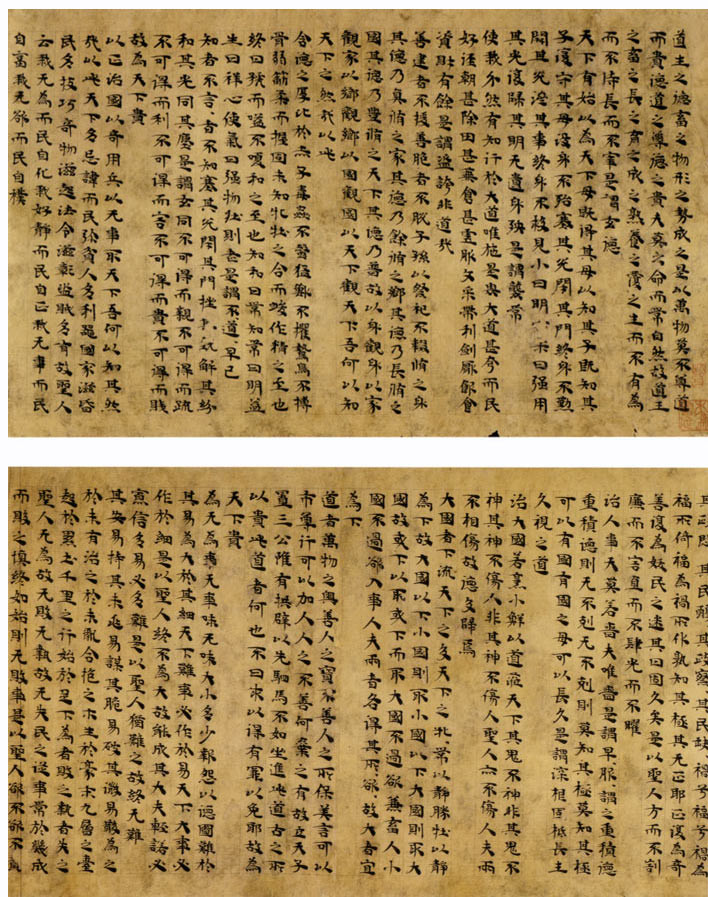 道生之德畜之物形之勢成之是以萬物莫不尊道
而貴德道之尊德之貴夫莫之命而常自然故道生
之畜之長之育之成之熟養之覆之生而不有為
而不恃長而不宰是謂玄德
天下有始以為天下母既得其母以知其子既知其
子復守其母没身不殆塞其兌閉其門終身不勤
開其兌濟其事終身不救見小曰明柔曰强用
其光復歸其明无遺身殃是謂襲常
使我介然有知行於大道唯施是畏大道甚夷而民
好徑朝甚除田甚蕪倉甚虛服文采帶利劍厭飲食
資財有餘是謂盗誇非道哉
善建者不拔善抱者不脱子孫以祭祀不輟脩之身
其德乃真脩之家其德乃餘脩之鄉其德乃長脩之
國其德乃豐脩之天下其德乃普故以身觀身以家
觀家以鄉觀鄉以國觀國以天下觀天下吾何以知
天下之然哉以此
含德之厚比於赤子毒蟲不螫猛獸不攫鳥不搏
骨弱筋柔而握固未知牝牡之合而峻作精之至也
終日號而嗌不嗄和之至也知和曰常知常曰明益
生曰祥心使氣曰强物壯則老是謂不道早已
知者不言言者不知塞其兌閉其門挫其銳解其紛
和其光同其塵是謂玄同不可得而親不可得而疏
不可得而利不可得而害不可得而貴不可得而賤
故為天下貴
以正治國以奇用兵以无事取天下吾何以知其然
哉以此天下多忌諱而民弥貧人多利器國家滋昏
民多技巧奇物滋起法令滋彰盗賊多有故聖人
云我无為而民自化我好靜而民自正我无事而民
自富我无欲而民自樸
其民醇其政察其民缺禍兮福兮禍為
福所倚福為禍所伏孰知其極其无正耶正復為奇
善復為妖民之迷其曰固久矣是以聖人方而不割
廉而不害直而不肆光而不曜
治人事天莫若嗇夫唯嗇是謂早服早服謂之重積德
重積德則无不剋无不剋則莫知其極莫知其極
可以有國有國之母可以長久是謂深根固柢長生
久視之道
治大國若烹小鮮以道莅天下其鬼不神非其鬼不
神其神不傷人非其神不傷人聖人亦不傷人夫兩
不相傷故德交歸焉
大國者下流天下之交天下之牝牝常以靜勝牡以靜
為下故大國以下小國則取小國小國以下大國則取大
國故或下以取或下而取大國不過欲兼畜人小
國不過欲入事人夫兩者各得其所欲故大者宜
為下
道者萬物之奥善人之寶不善人之所保美言可以
市尊行可以加人人之不善何棄之有故立天子
置三公雖有拱璧以先駟馬不如坐進此道古之所
以貴此道者何也不曰求以得有罪以免耶故為
天下貴
為无為事无事味无味大小多少報怨以德圖難於
其易為大於其細天下難事必作於易天下大事必
作於細是以聖人終不為大故能成其大夫輕諾必
寡信多易必多難是以聖人猶難之故終无難
其安易持其未兆易謀其脆易破其微易散為之
於未有治之於未亂合抱之木生於豪末九層之臺
起於累土千里之行始於足下為者敗之執者失之
聖人无為故无敗无執故无失民之從事常於幾成
而敗之慎終如始則无敗事是以聖人欲不欲不